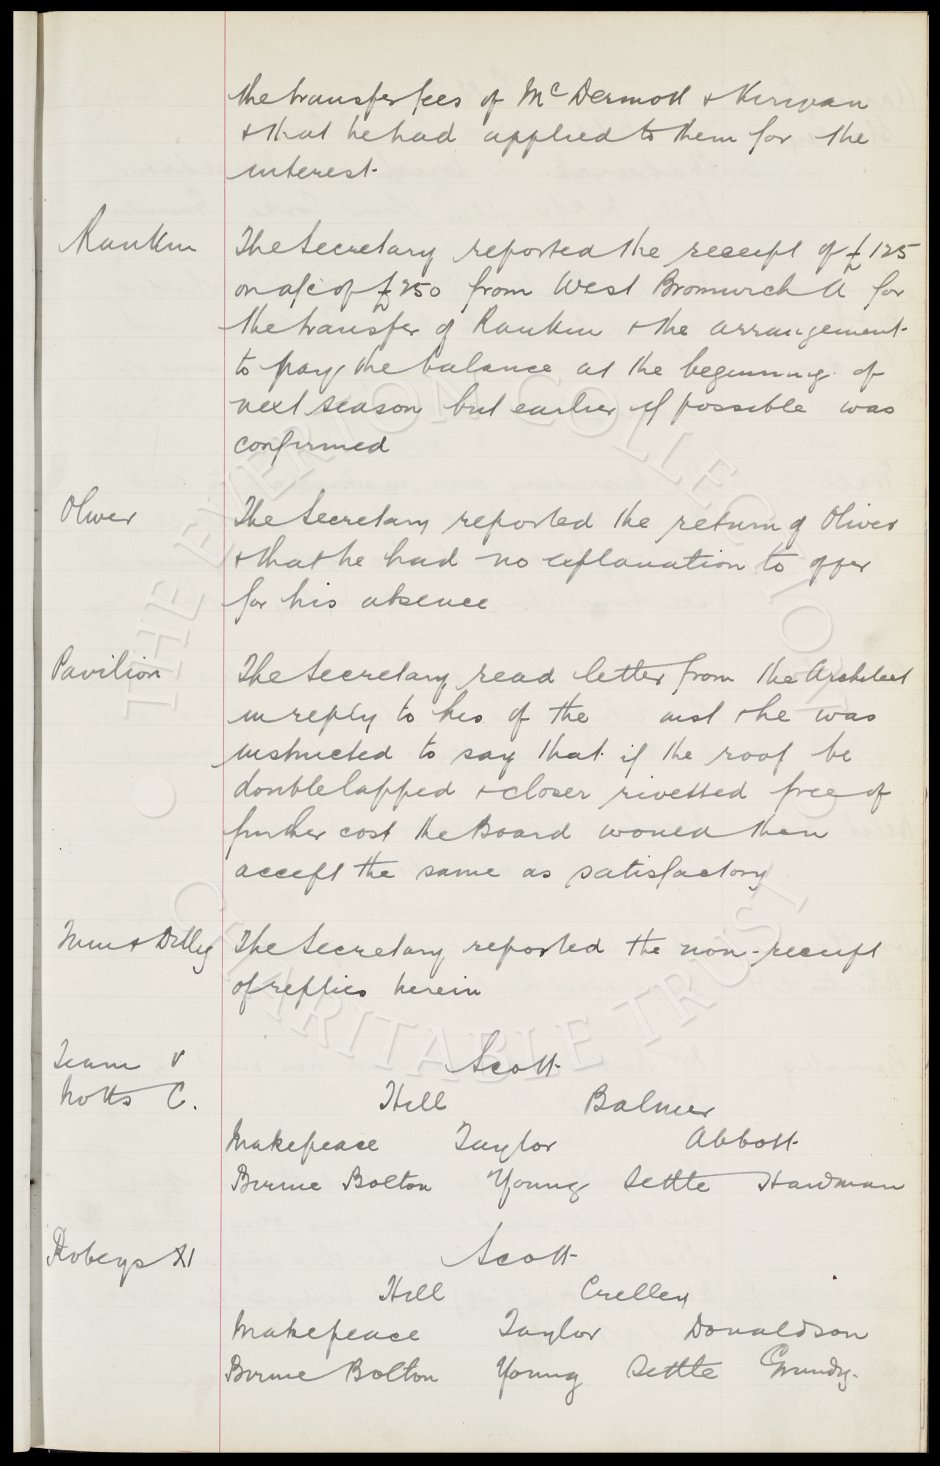 the transfer fees of McDermott & Kirwan
& that he had applied to them for the
interest.
Rankin The Secretary reported the receipt of £125
on a/c of £250 from West Bromwich A for
the transfer of Rankin & the arrangement
to pay the balance at the beginning of
next season but earlier if possible was
confirmed
Oliver The Secretary reported the return of Oliver
& that he had no explanation to offer
for his absence
Pavilion The Secretary read letter from the Architect
in reply to his of the inst & he was
instructed to say that if the roof be
double lapped & closer rivetted free of
further cost the Board would then
accept the same as satisfactory
& Dilly The Secretary reported the non-receipt
of replies herein
Team v Scott
Notts C. Hill Balmer
Makepeace Taylor Abbott
Birnie Bolton Young Settle Hardman
Robeys XI Scott
Hill Crelley
Makepeace Taylor Donaldson
Birnie Bolton Young Settle Grundy.
© THE EVERTON COLLECTION
© CHARITABLE TRUST